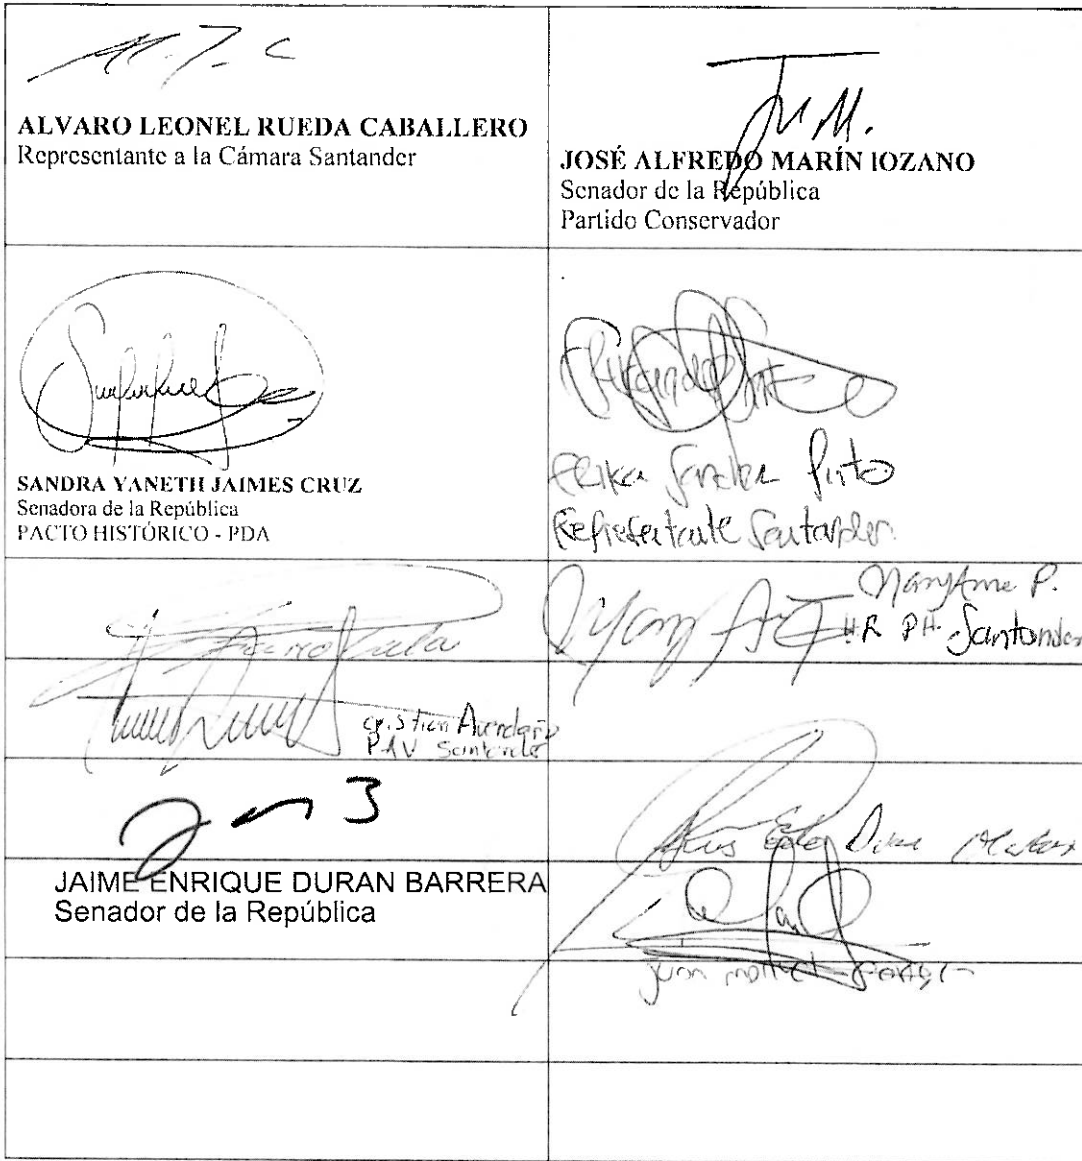 ALVARO LEONEL RUEDA CABALLERO
Representante a la Cámara Santander
JOSÉ ALFREDO MARÍN lOZANO
Senador de la República
Partido Conservador
SANDRA YANETH JAIMES CRUZ
Senadora de la República
PACTO HISTÓRICO - PDA
Erika Pinto
Representante Santander
MaryAnne P.
HR PH Santander
Cristian Avendaño
PAV Santander
JAIME ENRIQUE DURAN BARRERA
Senador de la República
Juan Manuel